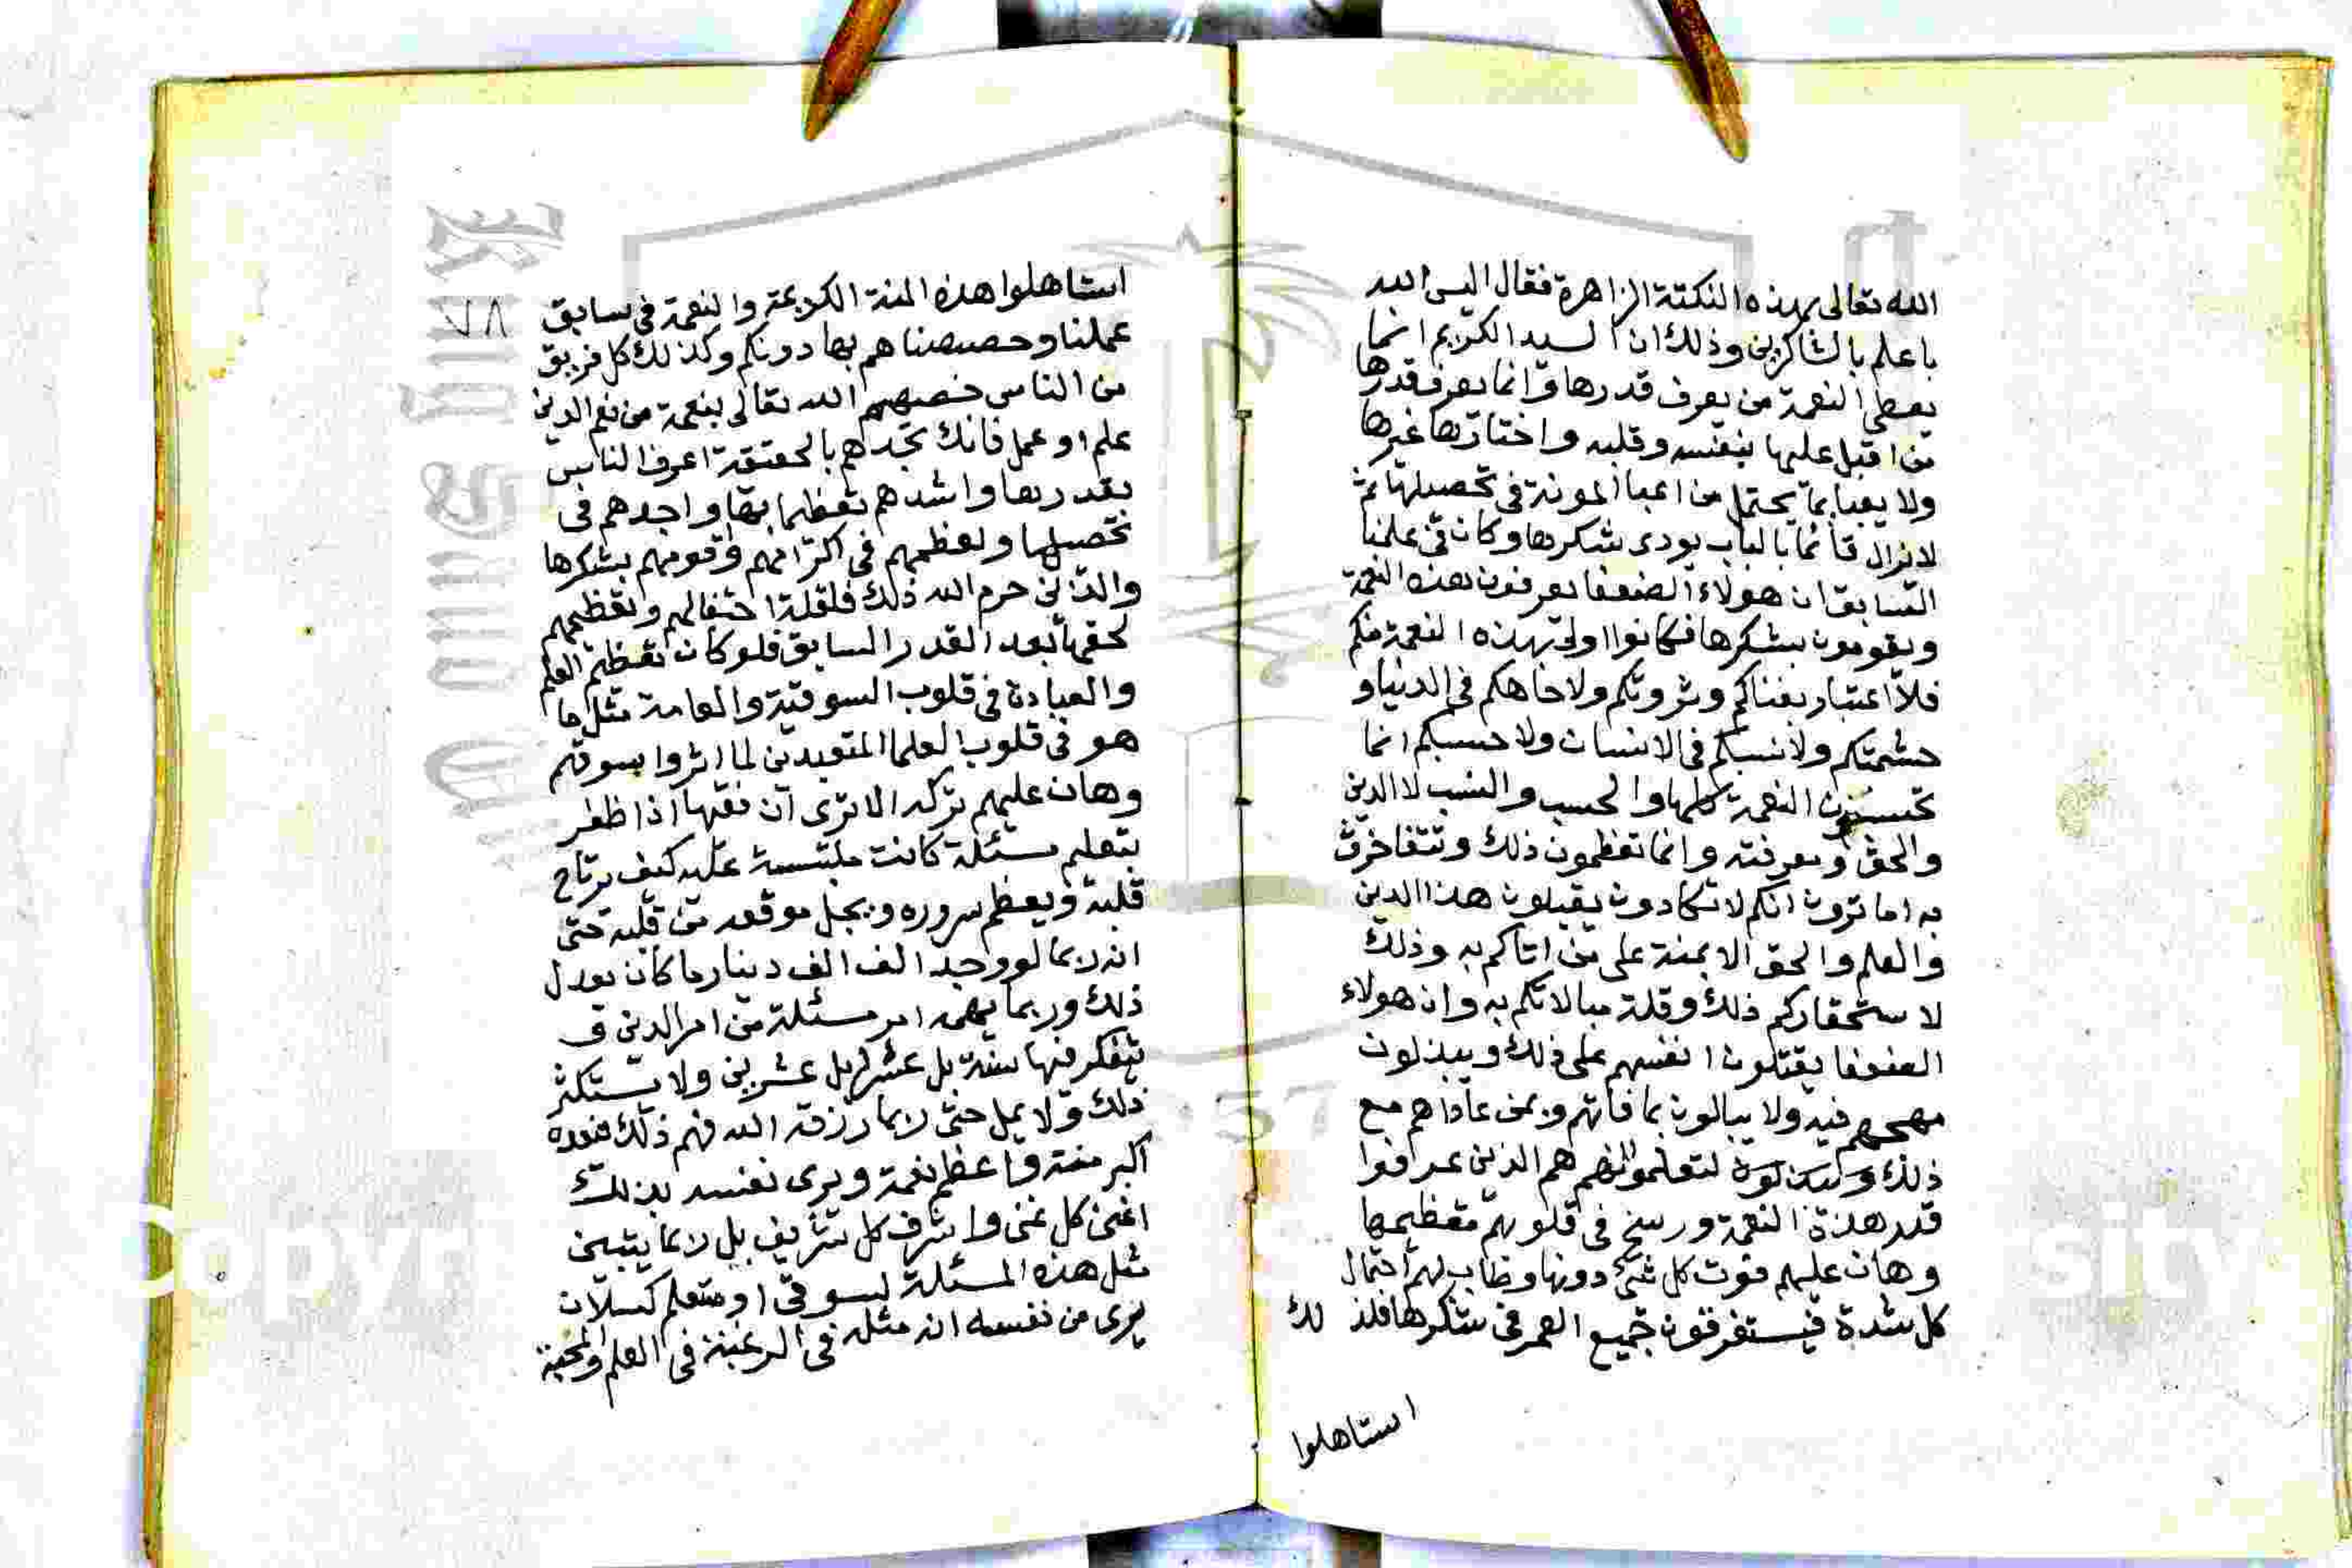 الله تعالى بهذه النكتة الزاهرة فقال اليس الله
باعلم بالشاكرين وذلك ان السيد الكريم انما
يعطي النعمة من يعرف قدرها وانما يعرف قدرها
من اقبل عليها بنفسه وقلبه واختارها غيرها
ولا يعبا بما يحتمل من اعبا المونة في تحصيلها ثم
لا يزال قائما بالباب يودى شكرها وكان في علمنا
السابق ان هولاء الضعفا يعرفون هذه النعمة
ويقومون بشكرها فكانوا اولى بهذه النعمة منكم
فلا اعتبار بغناكم وثروتكم ولا جاهكم في الدنيا و
حشمتكم ولا نسبكم في الانساب ولا حسبكم انما
تحسبون النعمة كلها والحسب والنسب لا الدين
والحق ومعرفته وانما تعظمون ذلك وتتفاخرون
به اما ترون انكم لا تكادون يقبلون هذا الدين
والعلم والحق الا بمنة على من اتاكم به وذلك
لاستحقاركم ذلك وقلة مبالاتكم به وان هولاء
الضعفا يقتلون انفسهم على ذلك ويبذلون
مهجهم فيه ولا يبالون بما فاتهم وبمن عاداهم مع
ذلك لتعلموا انهم هم الذين عرفوا
قدر هذة النعمة ورسخ في قلوبهم تعظيمها
وهان عليهم فوت كل شئ دونها وطاب لهم احتمال
كل شدة فيستغرقون جميع العمر في شكرها فلذ لك
استاهلوا
استاهلوا هذه المنة الكريمة والنعمة في سابق
٧٨
علمنا وخصصناهم بها دونكم وكذلك كل فريق
من الناس خصهم الله تعالى بنعمة من نعم الدين
علم او عمل فانك تجدهم بالحقيقة اعرف الناس
بقدرها واشدهم تعظيما بها واجدهم في
تحصيلها واعظمهم في اكرامهم وقومهم بشكرها
والذين حرم الله ذلك فلقلة احتفالهم وتعظيمهم
لحقها بعد القدر السابق فلو كان تعظيم العلم
والعبادة في قلوب السوقية والعامة مثل ما
هو في قلوب العلما المتعبدين لما اثروا بسوقهم
وهان عليهم تركه الا ترى ان فقيها اذا ظفر
بتعليم مسئلة كانت ملتبسة عليه كيف يرتاح
قلبه ويعظم سروره ويجل موقعه من قلبه حتى
انه ربما لو وجد الف الف دينار ما كان يعدل
ذلك وربما يهمه امر مسئلة من امر الدين ف
يتفكر فيها سنة بل عشرا بل عشرين ولا يستكثر
ذلك ولا يمل حتى ربما رزقه الله فهم ذلك فيعده
اكبر منة واعظم نعمة ويرى نفسه بذلك
اغنى كل غني واشرف كل شريف بل ربما يتبين
مثل هذه المسئلة لسوقي او متعلم كسلان
يرى من نفسه انه مثله في الرغبة في العلم والمحبة